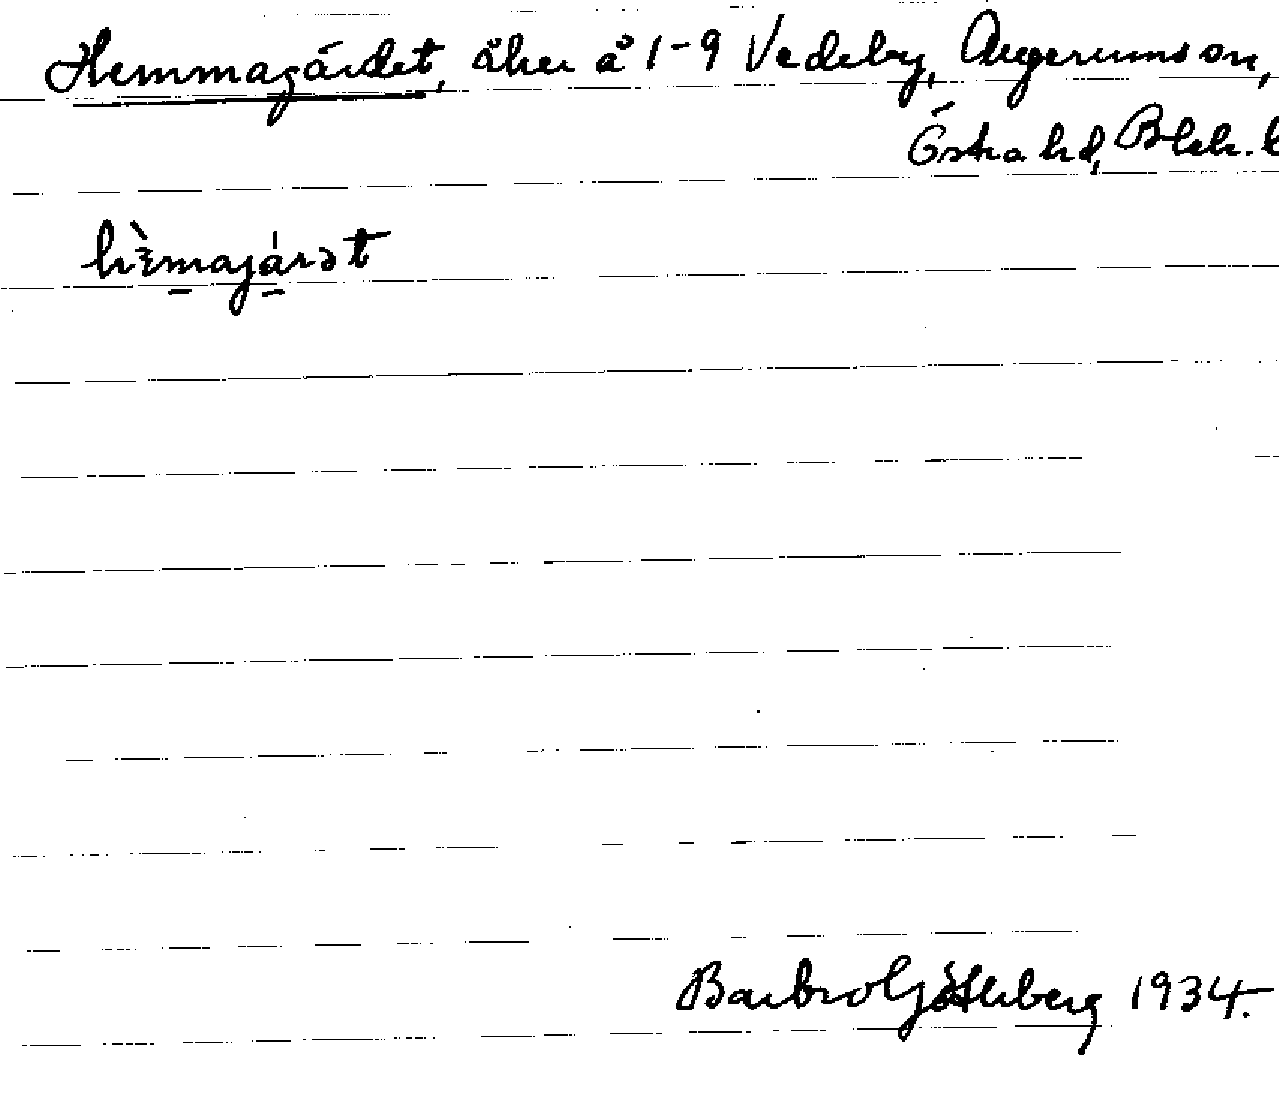 Hemmagärdet, åker å 1-9 Vedeby, Augerums sn,
Östra hd, Blek. l
hɛ̀majárət
Barbro Götleberg 1934.